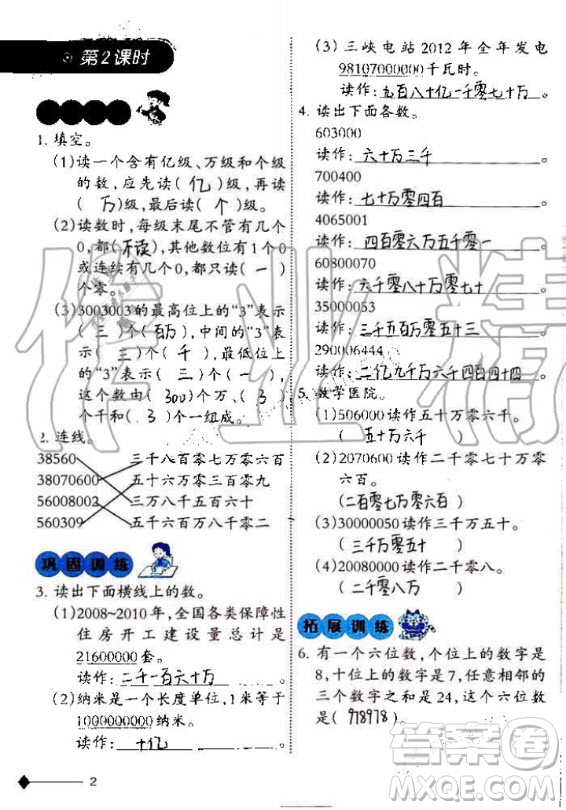 第2课时
1. 填空。
(1)读一个含有亿级、万级和个级
的数,应先读(亿)级,再读
(万)级,最后读(个)级。
(2)读数时,每级末尾不管有几个
0,都(不读),其他数位有1个0
或连续有几个0,都只读(一)
个零。
(3)3003003的最高位上的“3”表示
(三)个(百万),中间的“3”表
示(三)个(千),最低位上的
“3”表示(三)个(一)。
这个数由(300)个万、(3)
个千和(3)个一组成。
2. 连线。
38560 三千八百零七万零六百
38070600 五十六万零三百零九
56008002 三万八千五百六十
560309 五千六百万八千零二
巩固训练
3. 读出下面横线上的数。
(1)2008~2010年,全国各类保障性
住房开工建设量总计是
21600000套。
读作:二千一百六十万
(2)纳米是一个长度单位,1米等于
1000000000纳米。
读作:十亿
2
(3)三峡电站2012年全年发电
98107000000千瓦时。
读作:九百八十亿一千零七十万
4. 读出下面各数。
603000
读作:六十万三千
700400
读作:七十万零四百
4065001
读作:四百零六万五千零一
60800070
读作:六千零八十万零七十
35000053
读作:三千五百万零五十三
290006444
读作:二亿九千万六千四百四十四
5. 数学医院。
(1)506000读作五十万零六千。
(五十万六千)
(2)2070600读作二千零七十万零
六百。
(二百零七万零六百)
(3)30000050读作三千万五十。
(三千万零五十)
(4)20080000读作二千零八。
(二千零八万)
拓展训练
6. 有一个六位数,个位上的数字是
8,十位上的数字是7,任意相邻的
三个数字之和是24,这个六位数
是(978978)。
作业精
答案圈
MXQE.COM